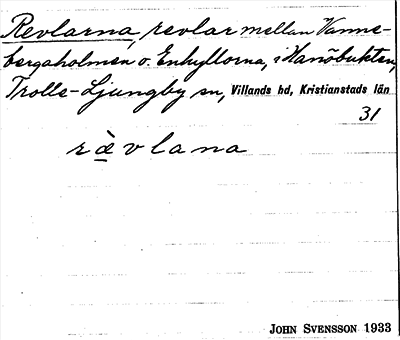 Revlarna, revlar mellan Vanne-
bergaholmen o. Enhyllorna, i Hanöbukten,
Trolle-Ljungby sn, Villands hd, Kristianstads län
31
rævlana
JOHN SVENSSON 1933